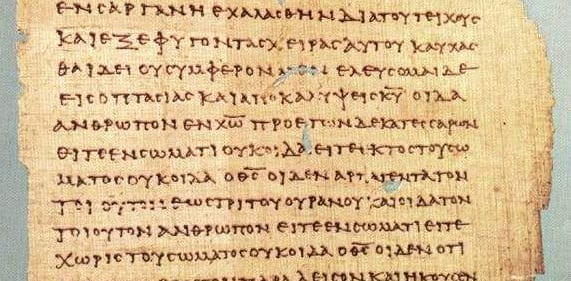 ΕΝ ΣΑΡΓΑΝΗ ΕΧΑΛΑΣΘΗΝ ΔΙΑ ΤΟΥ ΤΕΙΧΟΥΣ
ΚΑΙ ΕΞΕΦΥΓΟΝ ΤΑΣ ΧΕΙΡΑΣ ΑΥΤΟΥ ΚΑΥΧΑΣ
ΘΑΙ ΔΕΙ ΟΥ ΣΥΜΦΕΡΟΝ ΕΛΕΥΣΟΜΑΙ ΔΕ
ΕΙΣ ΟΠΤΑΣΙΑΣ ΚΑΙ ΑΠΟΚΑΛΥΨΕΙΣ Κ̅Υ̅ ΟΙΔΑ
ΑΝΘΡΩΠΟΝ ΕΝ Χ̅Ω̅ ΠΡΟ ΕΤΩΝ ΔΕΚΑΤΕΣΣΑΡΩΝ
ΕΙΤΕ ΕΝ ΣΩΜΑΤΙ ΟΥΚ ΟΙΔΑ ΕΙΤΕ ΕΚΤΟΣ ΤΟΥ ΣΩ
ΜΑΤΟΣ ΟΥΚ ΟΙΔΑ Ο Θ̅Σ̅ ΟΙΔΕΝ ΑΡΠΑΓΕΝΤΑ ΤΟΝ
ΕΩΣ ΤΡΙΤΟΥ ΟΥΡΑΝΟΥ ΚΑΙ ΟΙΔΑ ΤΟΝ
ΤΟΙΟΥΤΟΝ ΑΝΘΡΩΠΟΝ ΕΙΤΕ ΕΝ ΣΩΜΑΤΙ ΕΙΤΕ
ΧΩΡΙΣ ΤΟΥ ΣΩΜΑΤΟΣ ΟΥΚ ΟΙΔΑ Ο Θ̅Σ̅ ΟΙΔΕΝ ΟΤΙ
ΚΑΙ ΗΚΟΥΣΕΝ